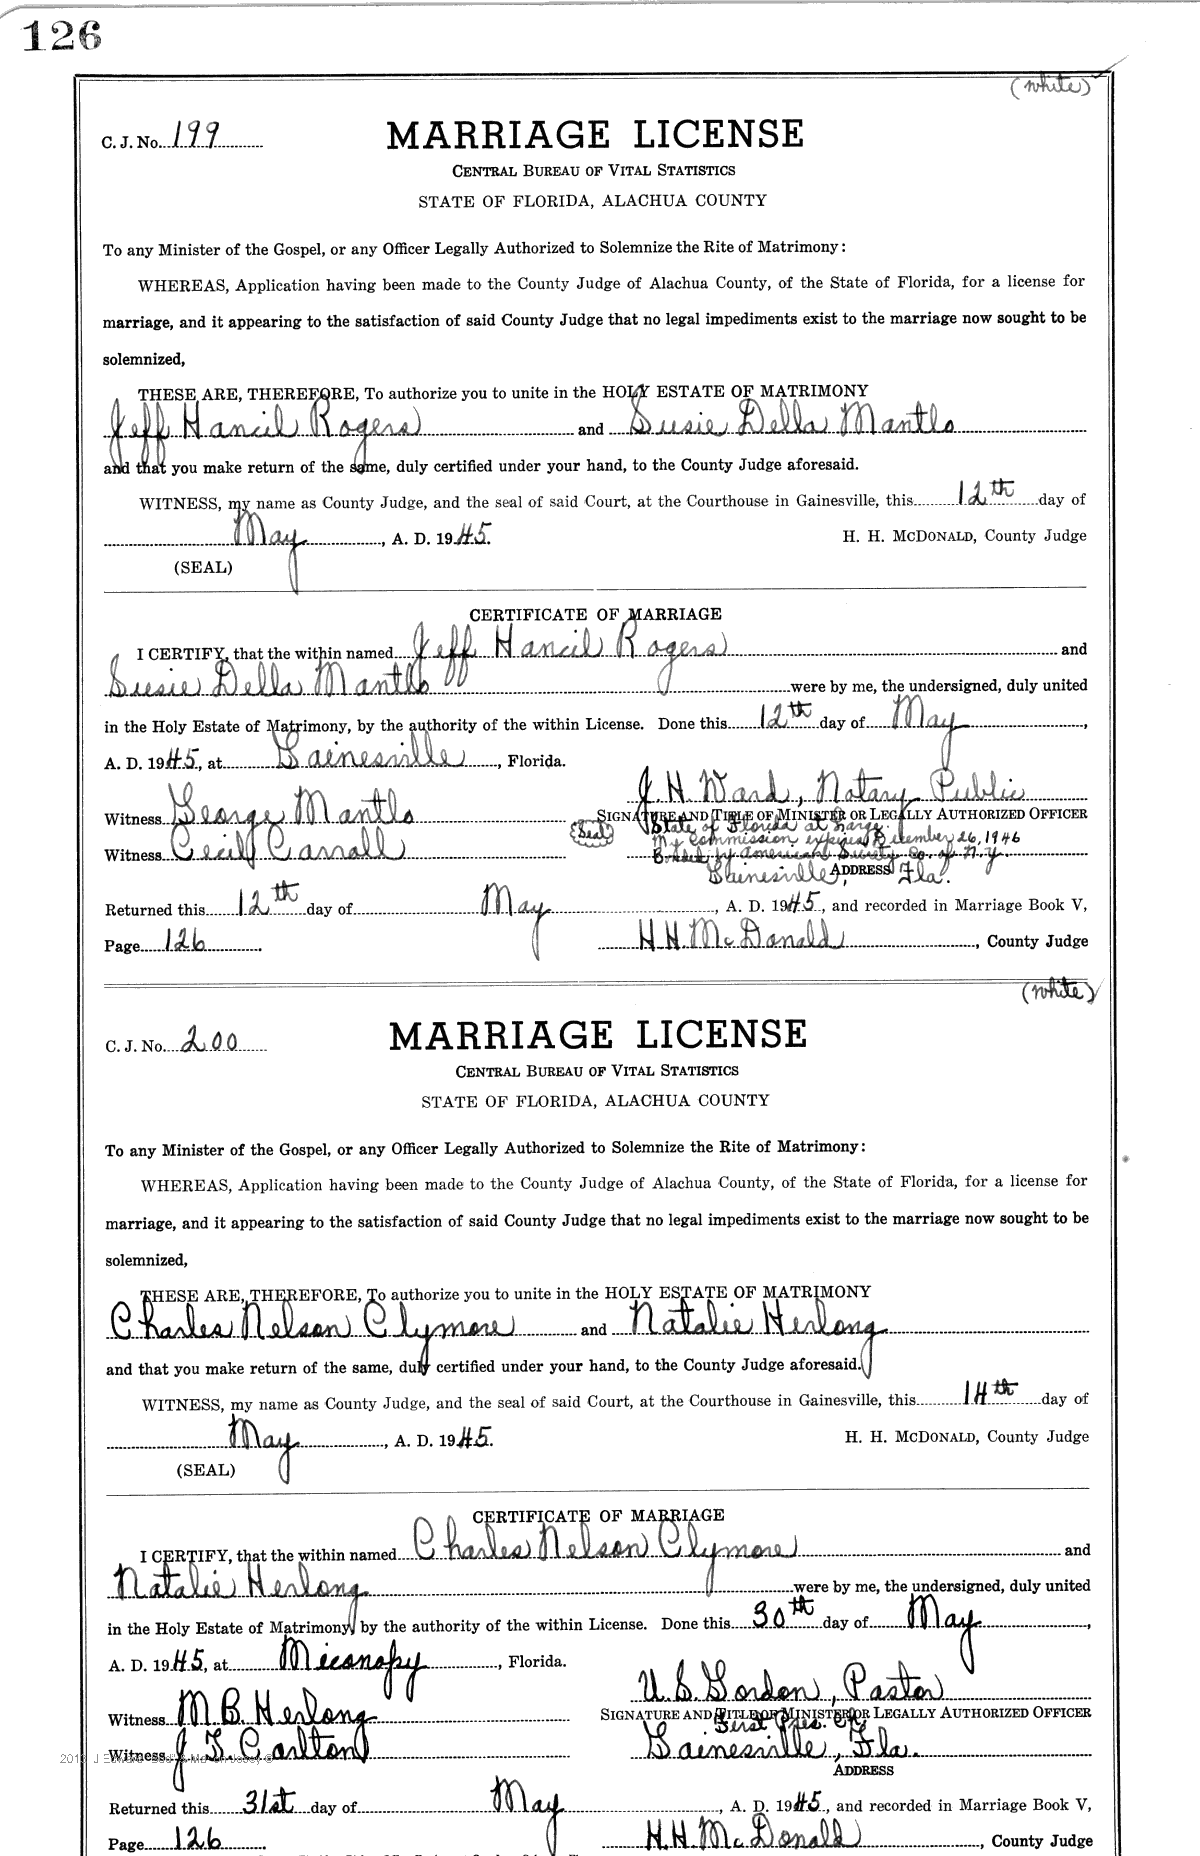 126
(white)
C. J. No. 199
MARRIAGE LICENSE
CENTRAL BUREAU OF VITAL STATISTICS
STATE OF FLORIDA, ALACHUA COUNTY
To any Minister of the Gospel, or any Officer Legally Authorized to Solemnize the Rite of Matrimony:
WHEREAS, Application having been made to the County Judge of Alachua County, of the State of Florida, for a license for
marriage, and it appearing to the satisfaction of said County Judge that no legal impediments exist to the marriage now sought to be
solemnized,
THESE ARE, THEREFORE, To authorize you to unite in the HOLY ESTATE OF MATRIMONY
Jeff Hancil Rogers and Susie Della Mantlo
and that you make return of the same, duly certified under your hand, to the County Judge aforesaid.
WITNESS, my name as County Judge, and the seal of said Court, at the Courthouse in Gainesville, this 12th day of
May, A. D. 1945. H. H. MCDONALD, County Judge
(SEAL)
CERTIFICATE OF MARRIAGE
I CERTIFY, that the within named Jeff Hancil Rogers and
Susie Della Mantlo were by me, the undersigned, duly united
in the Holy Estate of Matrimony, by the authority of the within License. Done this 12th day of May,
A. D. 1945, at Gainesville, Florida.
J. H. Ward, Notary Public
Witness George Mantlo SIGNATURE AND TITLE OF MINISTER OR LEGALLY AUTHORIZED OFFICER
(Seal) State of Florida at Large.
My commission expires December 26, 1946
Witness Cecil Carroll Bonded by American Surety Co. of N.Y.
Gainesville, Fla. ADDRESS
Returned this 12th day of May, A. D. 1945, and recorded in Marriage Book V,
Page 126. H. H. McDonald, County Judge
(white)
C. J. No. 200
MARRIAGE LICENSE
CENTRAL BUREAU OF VITAL STATISTICS
STATE OF FLORIDA, ALACHUA COUNTY
To any Minister of the Gospel, or any Officer Legally Authorized to Solemnize the Rite of Matrimony:
WHEREAS, Application having been made to the County Judge of Alachua County, of the State of Florida, for a license for
marriage, and it appearing to the satisfaction of said County Judge that no legal impediments exist to the marriage now sought to be
solemnized,
THESE ARE, THEREFORE, To authorize you to unite in the HOLY ESTATE OF MATRIMONY
Charles Nelson Clymore and Natalie Herlong
and that you make return of the same, duly certified under your hand, to the County Judge aforesaid.
WITNESS, my name as County Judge, and the seal of said Court, at the Courthouse in Gainesville, this 14th day of
May, A. D. 1945. H. H. MCDONALD, County Judge
(SEAL)
CERTIFICATE OF MARRIAGE
I CERTIFY, that the within named Charles Nelson Clymore and
Natalie Herlong were by me, the undersigned, duly united
in the Holy Estate of Matrimony, by the authority of the within License. Done this 30th day of May,
A. D. 1945, at Micanopy, Florida.
U. S. Gordon, Pastor
Witness M. B. Herlong SIGNATURE AND TITLE OF MINISTER OR LEGALLY AUTHORIZED OFFICER
First Pres. Ch.
Witness J. F. Carlton Gainesville, Fla.
ADDRESS
Returned this 31st day of May, A. D. 1945, and recorded in Marriage Book V,
Page 126. H. H. McDonald, County Judge